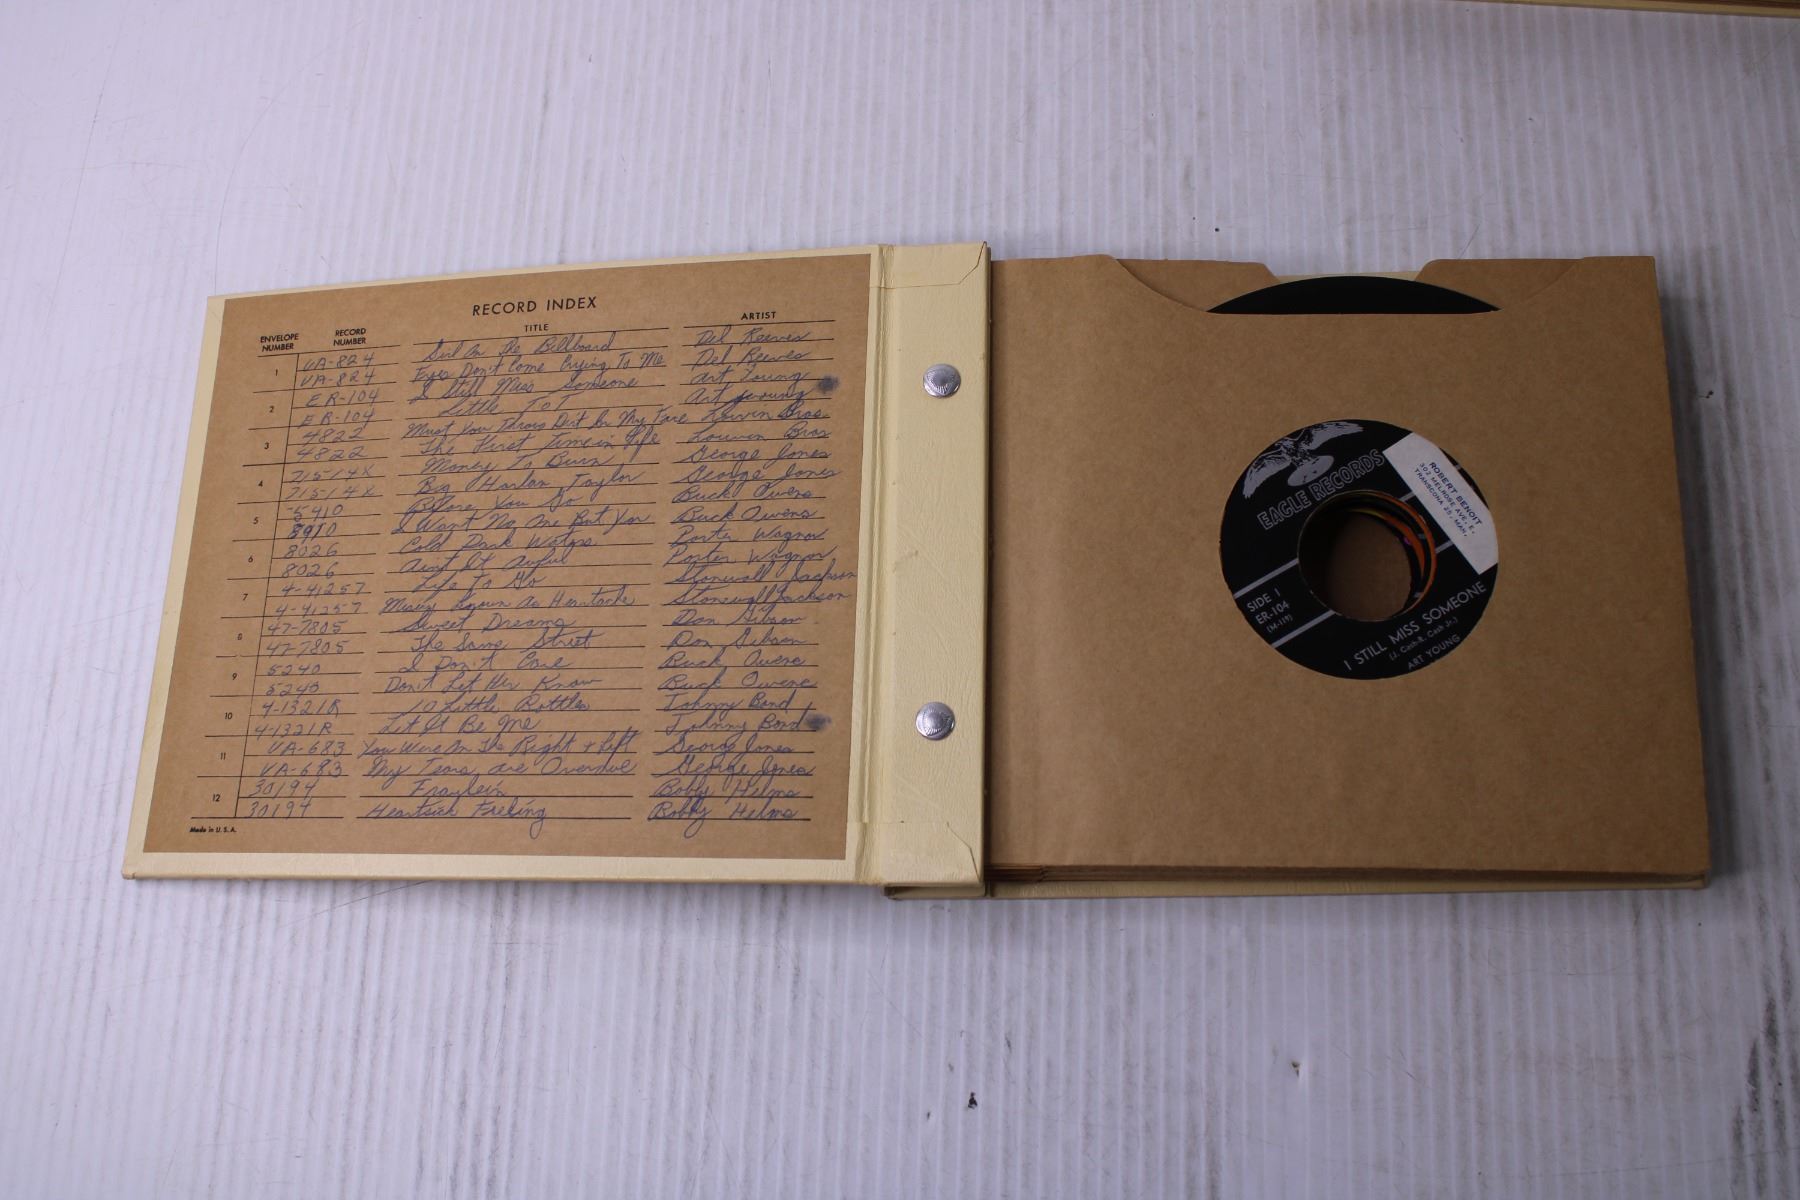 RECORD INDEX
ENVELOPE NUMBER RECORD NUMBER TITLE ARTIST
1 UA-824 Girl On The Billboard Del Reeves
UA-824 Eyes Don't Come Crying To Me Del Reeves
2 ER-104 I Still Miss Someone Art Young
ER-104 Little ToT Art Young
3 4822 Must You Throw Dirt In My Face Louvin Bros
4822 The First Time in Life Louvin Bros
4 71514X Money To Burn George Jones
71514X Big Harlan Taylor George Jones
5 5410 Before You Go Buck Owens
I Want No One But You Buck Owens
6 8026 Cold Dark Waters Porter Wagnor
8026 Aint It Awful Porter Wagnor
7 4-41257 Life To Go Stonewall Jackson
4-41257 Misery Known As Heartache Stonewall Jackson
8 47-7805 Sweet Dreams Don Gibson
47-7805 The Same Street Don Gibson
9 5240 I Don't Care Buck Owens
5240 Don't Let Her Know Buck Owens
10 4-1321R 10 Little Bottles Johnny Bond
4-1321R Let It Be Me Johnny Bond
11 UA-683 You Were On The Right + Left George Jones
UA-683 My Tears are Overdue George Jones
12 30194 Fraulein Bobby Helms
30194 Heartsick Feeling Bobby Helms
Made in U.S.A.
EAGLE RECORDS
ROBERT BENOIT
302 MELROSE AVE. E.
TRANSCONA 25, MAN.
SIDE 1
ER-104
(M-119)
I STILL MISS SOMEONE
(J. Cash-R. Cash Jr.)
ART YOUNG